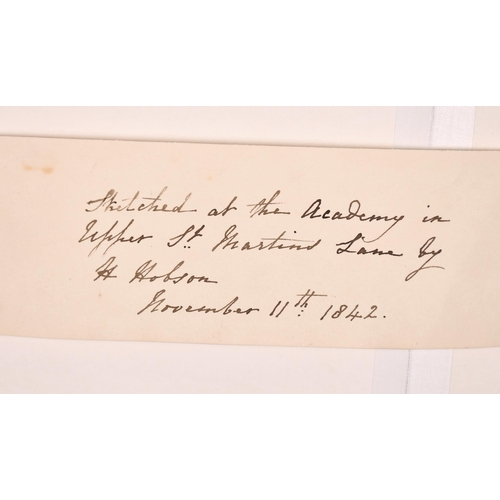 Sketched at the Academy in
Upper St. Martins Lane by
H Hobson
November 11th. 1842.